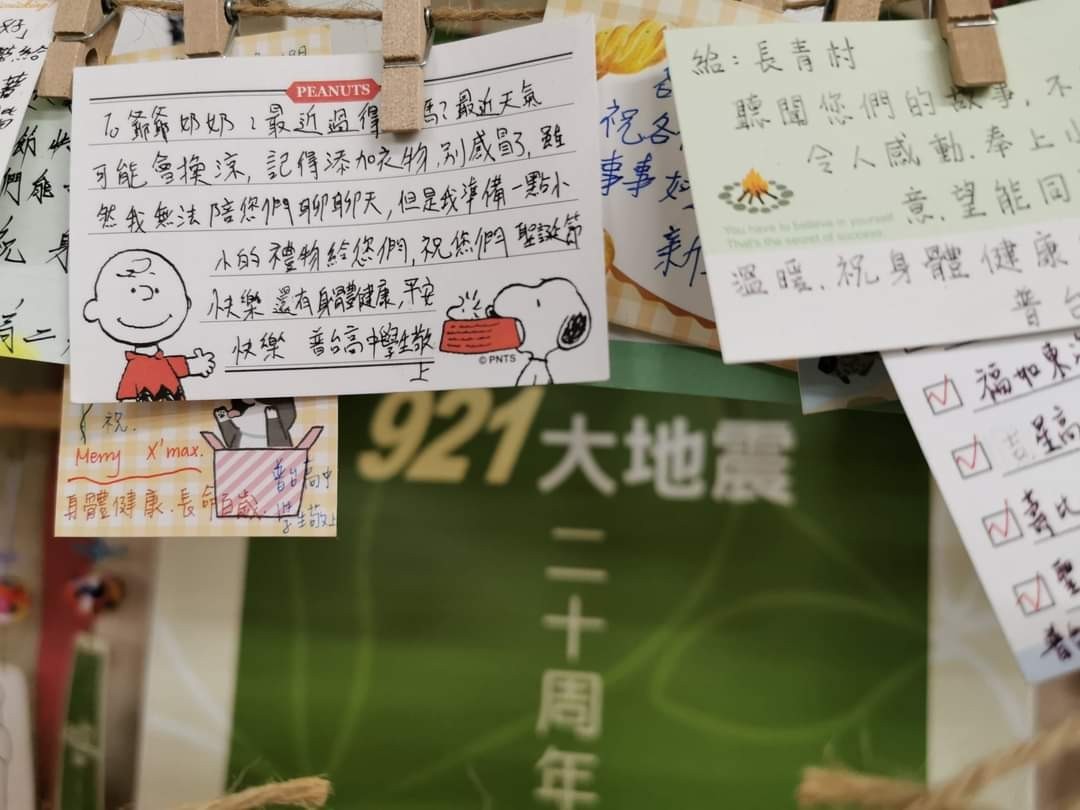 PEANUTS
To 爺爺奶奶:最近過得 嗎?最近天氣
可能會換涼,記得添加衣物,別感冒了,雖
然我無法陪您們聊聊天,但是我準備一點小
小的禮物給您們,祝您們 聖誕節
快樂 還有身體健康,平安
快樂 普台高中學生敬
上
©PNTS
給:長青村
聽聞您們的故事,不
令人感動.奉上小
意,望能同
You have to believe in yourself.
That's the secret of success.
溫暖.祝身體健康
普台
祝各
事事
新
福如東海
星高
壽比
聖
普台
祝.
Merry X'max.
身體健康.長命百歲.
普台高中
學生敬上
高二
921大地震
二十周年